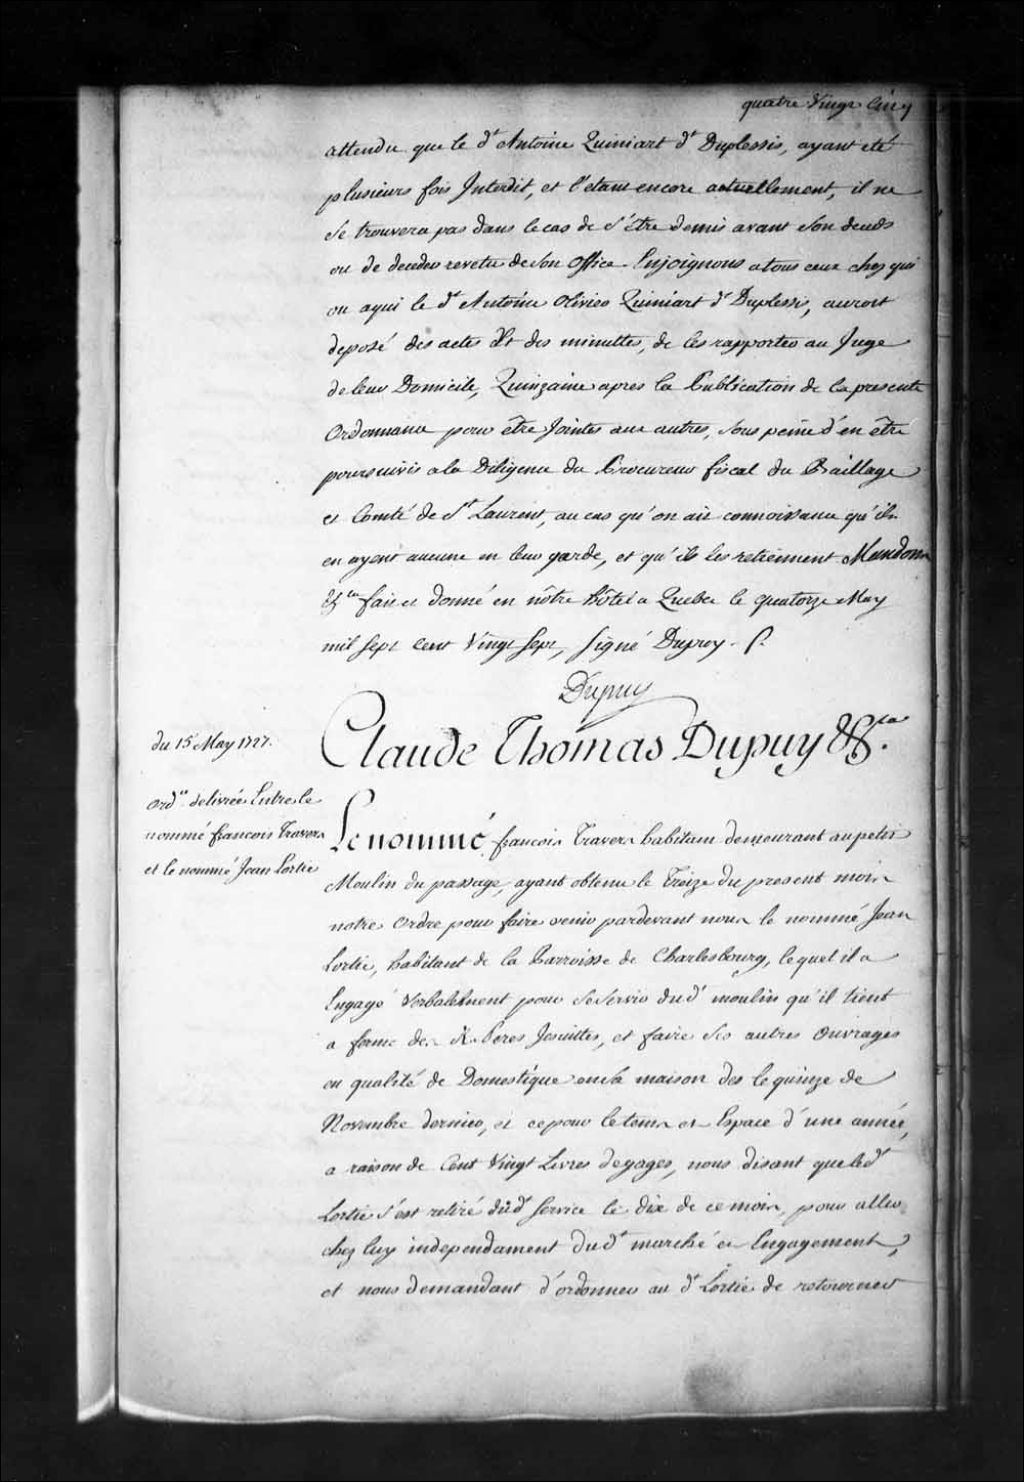 quatre Vingt Cinq
attendu que le dt Antoine Quiniart dt Duplessis, ayant eté
plusieurs fois Interdit, et l'etant encore actuellement, il ne
se trouvera pas dans le cas de s'être demis avant son deceds
ou de deceder revetu de son office. Enjoignons a tous ceux chez qui
ou a qui le dt Antoine Olivier Quiniart dt Duplessis, auroit
deposé des actes et des minuttes, de les rapporter au Juge
de leur Domicile, Quinzaine apres la Publication de la presente
Ordonnance pour être Jointes aux autres, sous peine d'en être
poursuivis a la Diligence du Procureur fiscal du Baillage
et Comté de St Laurent, au cas qu'on ait connoissance qu'ils
en ayent aucune en leur garde, et qu'ils les retiennent Mandons
&ca fait et donné en nôtre hôtel a Quebec le quatorze May
mil sept cent Vingt sept, signé Dupuy. P.
Dupuy
Claude Thomas Dupuy &ca.
du 15 May 1727.
Ordce delivrée Entre le
nommé francois Travers
et le nommé Jean Lortie
Le nommé francois Travers habitant demeurant au petit
Moulin du passage, ayant obtenu le Treize du present mois
notre Ordre pour faire venir pardevant nous le nommé Jean
Lortie, habitant de la Parroisse de Charlesbourg, lequel il a
Engagé Verballement pour se servir dud' moulin qu'il tient
a ferme des R. Peres Jesuittes, et faire ses autres Ouvrages
en qualité de Domestique en sa maison des le quinze de
Novembre dernier, et ce pour le tems et Espace d'une année,
a raison de Cent Vingt Livres de gages, nous disant que led'
Lortie s'est retiré dud' service le dix de ce mois, pour aller
chez luy independament dud' marché et Engagement,
et nous demandant d'ordonner au dt Lortie de retourner